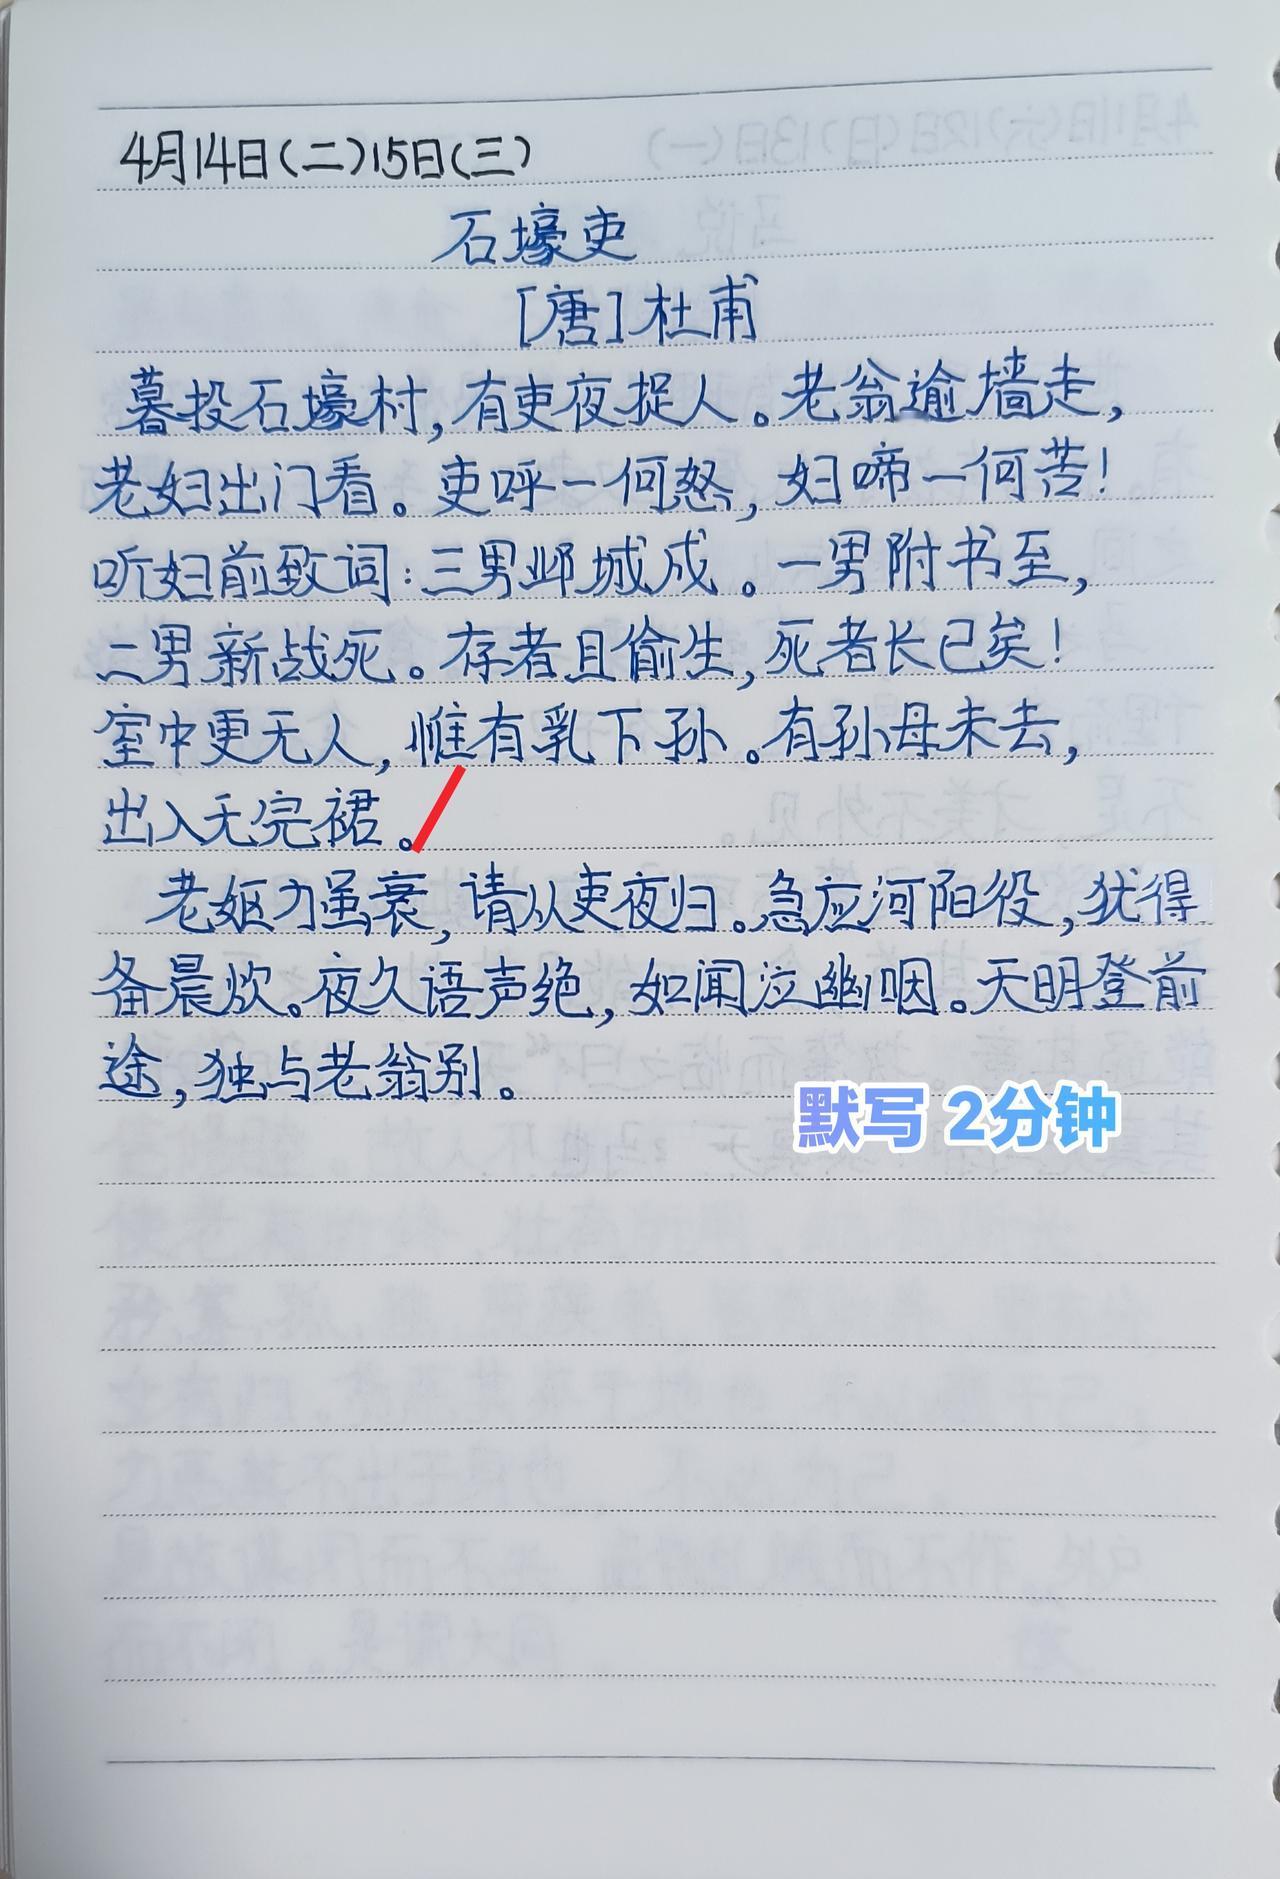 4月14日(二)15日(三)
石壕吏
[唐]杜甫
暮投石壕村,有吏夜捉人。老翁逾墙走,
老妇出门看。吏呼一何怒,妇啼一何苦!
听妇前致词:三男邺城戍。一男附书至,
二男新战死。存者且偷生,死者长已矣!
室中更无人,惟有乳下孙。有孙母未去,
出入无完裙。
老妪力虽衰,请从吏夜归。急应河阳役,犹得
备晨炊。夜久语声绝,如闻泣幽咽。天明登前
途,独与老翁别。
默写 2分钟